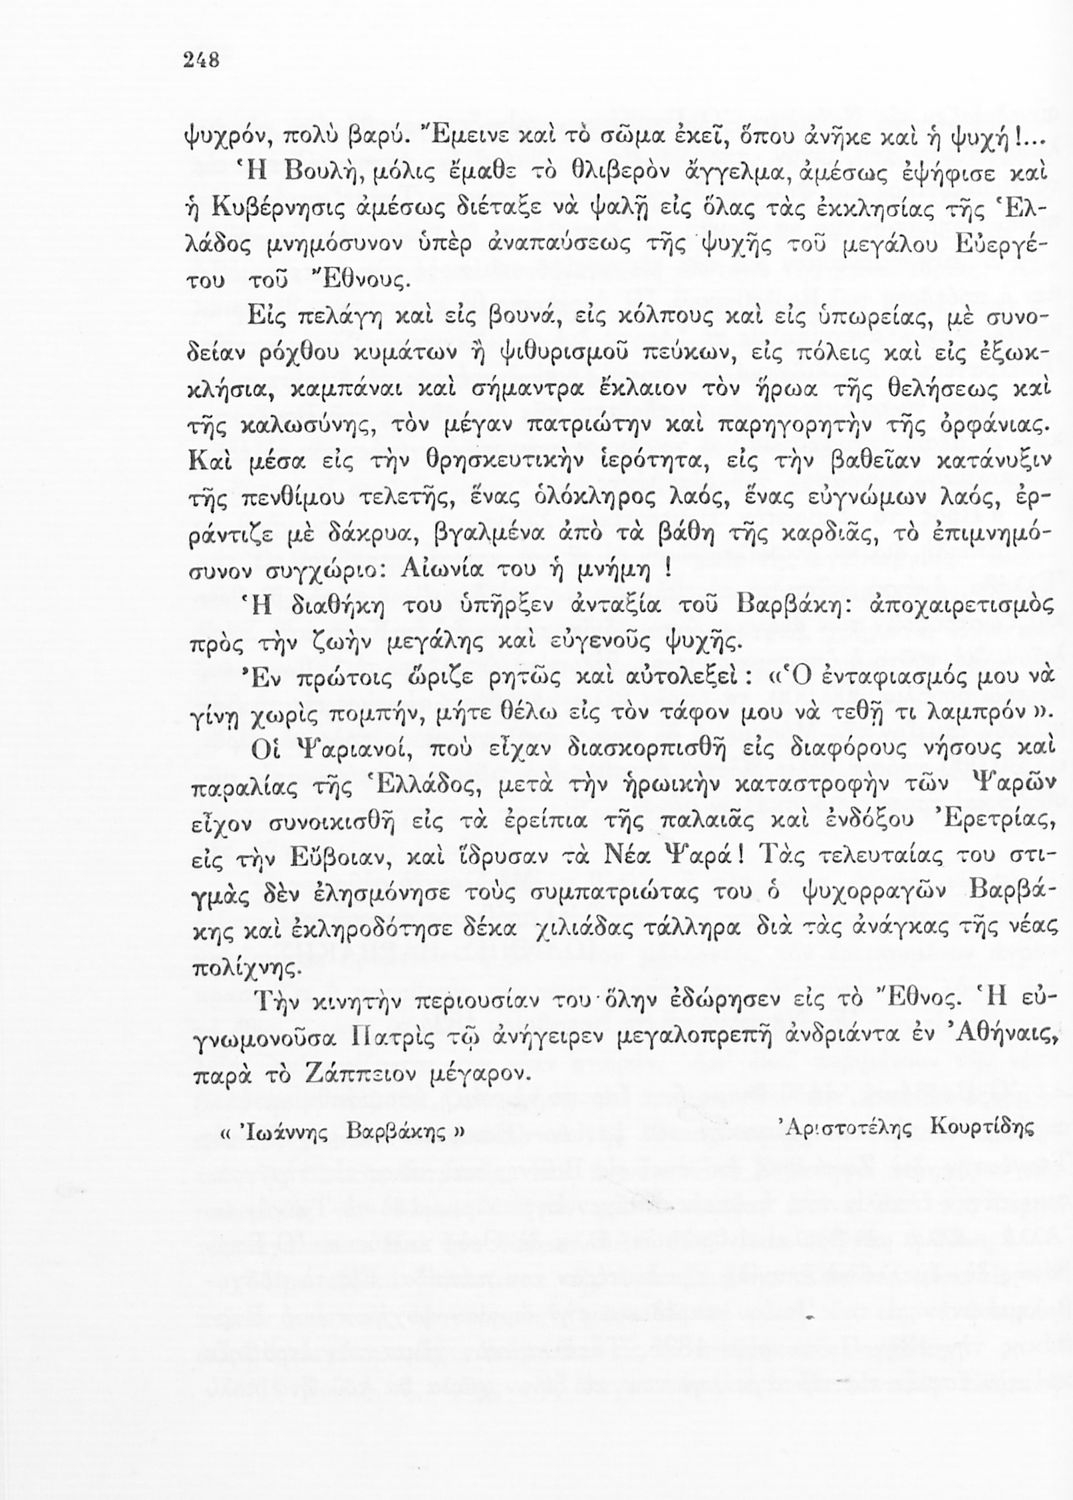 248
ψυχρόν, πολὺ βαρύ. Ἔμεινε καὶ τὸ σῶμα ἐκεῖ, ὅπου ἀνῆκε καὶ ἡ ψυχή!...
Ἡ Βουλὴ, μόλις ἔμαθε τὸ θλιβερὸν ἄγγελμα, ἀμέσως ἐψήφισε καὶ
ἡ Κυβέρνησις ἀμέσως διέταξε νὰ ψαλῇ εἰς ὅλας τὰς ἐκκλησίας τῆς Ἑλ-
λάδος μνημόσυνον ὑπὲρ ἀναπαύσεως τῆς ψυχῆς τοῦ μεγάλου Εὐεργέ-
του τοῦ Ἔθνους.
Εἰς πελάγη καὶ εἰς βουνά, εἰς κόλπους καὶ εἰς ὑπωρείας, μὲ συνο-
δείαν ρόχθου κυμάτων ἢ ψιθυρισμοῦ πεύκων, εἰς πόλεις καὶ εἰς ἐξωκ-
κλήσια, καμπάναι καὶ σήμαντρα ἔκλαιον τὸν ἥρωα τῆς θελήσεως καὶ
τῆς καλωσύνης, τὸν μέγαν πατριώτην καὶ παρηγορητὴν τῆς ὀρφάνιας.
Καὶ μέσα εἰς τὴν θρησκευτικὴν ἱερότητα, εἰς τὴν βαθεῖαν κατάνυξιν
τῆς πενθίμου τελετῆς, ἕνας ὁλόκληρος λαός, ἕνας εὐγνώμων λαός, ἐρ-
ράντιζε μὲ δάκρυα, βγαλμένα ἀπὸ τὰ βάθη τῆς καρδιᾶς, τὸ ἐπιμνημό-
συνον συγχώριο: Αἰωνία του ἡ μνήμη !
Ἡ διαθήκη του ὑπῆρξεν ἀνταξία τοῦ Βαρβάκη: ἀποχαιρετισμὸς
πρὸς τὴν ζωὴν μεγάλης καὶ εὐγενοῦς ψυχῆς.
Ἐν πρώτοις ὥριζε ρητῶς καὶ αὐτολεξεὶ : «Ὁ ἐνταφιασμός μου νὰ
γίνῃ χωρὶς πομπήν, μήτε θέλω εἰς τὸν τάφον μου νὰ τεθῇ τι λαμπρόν».
Οἱ Ψαριανοί, ποὺ εἶχαν διασκορπισθῆ εἰς διαφόρους νήσους καὶ
παραλίας τῆς Ἑλλάδος, μετὰ τὴν ἡρωικὴν καταστροφὴν τῶν Ψαρῶν
εἶχον συνοικισθῆ εἰς τὰ ἐρείπια τῆς παλαιᾶς καὶ ἐνδόξου Ἐρετρίας,
εἰς τὴν Εὔβοιαν, καὶ ἵδρυσαν τὰ Νέα Ψαρά! Τὰς τελευταίας του στι-
γμὰς δὲν ἐλησμόνησε τοὺς συμπατριώτας του ὁ ψυχορραγῶν Βαρβά-
κης καὶ ἐκληροδότησε δέκα χιλιάδας τάλληρα διὰ τὰς ἀνάγκας τῆς νέας
πολίχνης.
Τὴν κινητὴν περιουσίαν του ὅλην ἐδώρησεν εἰς τὸ Ἔθνος. Ἡ εὐ-
γνωμονοῦσα Πατρὶς τῷ ἀνήγειρεν μεγαλοπρεπῆ ἀνδριάντα ἐν Ἀθήναις,
παρὰ τὸ Ζάππειον μέγαρον.
« Ἰωάννης Βαρβάκης » Ἀριστοτέλης Κουρτίδης